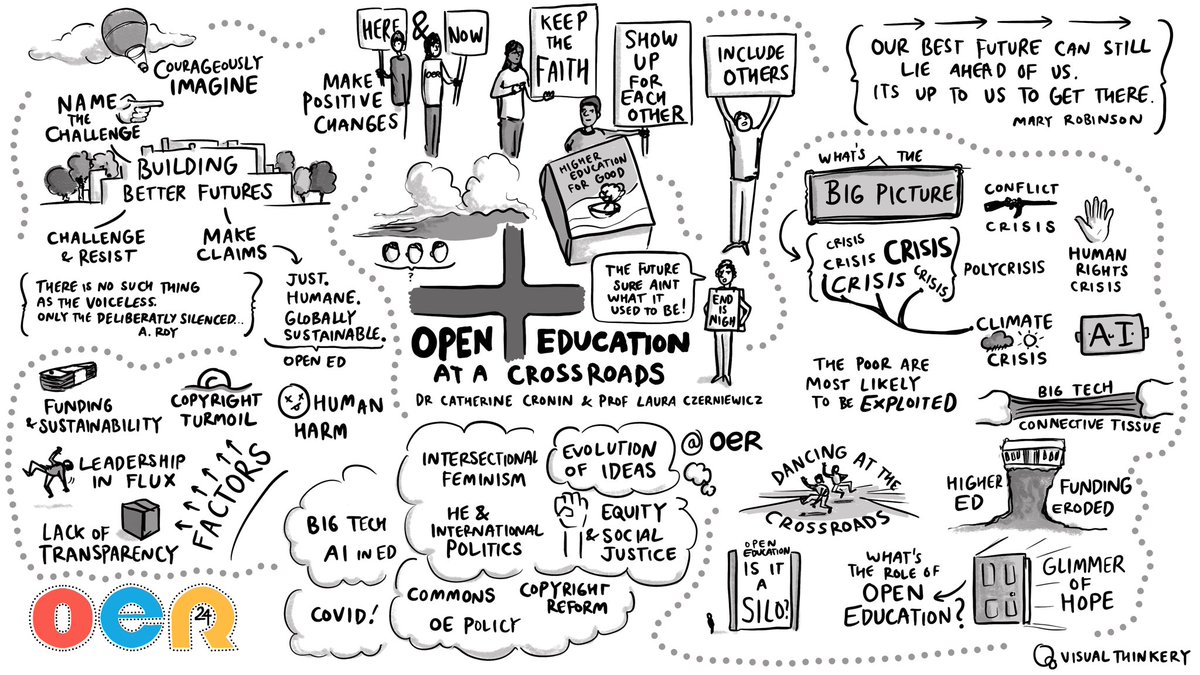 COURAGEOUSLY
IMAGINE
NAME
THE
CHALLENGE
BUILDING
BETTER FUTURES
CHALLENGE
& RESIST
MAKE
CLAIMS
THERE IS NO SUCH THING
AS THE VOICELESS.
ONLY THE DELIBERATLY SILENCED...
A. ROY
JUST.
HUMANE.
GLOBALLY
SUSTAINABLE.
OPEN ED
FUNDING
& SUSTAINABILITY
COPYRIGHT
TURMOIL
HUMAN
HARM
LEADERSHIP
IN FLUX
LACK OF
TRANSPARENCY
FACTORS
oer
24
HERE & NOW
MAKE
POSITIVE
CHANGES
OER
KEEP
THE
FAITH
SHOW
UP
FOR
EACH
OTHER
INCLUDE
OTHERS
HIGHER
EDUCATION
FOR GOOD
THE FUTURE
SURE AINT
WHAT IT
USED TO BE!
END
IS
NIGH
OPEN EDUCATION
AT A CROSSROADS
DR CATHERINE CRONIN & PROF LAURA CZERNIEWICZ
INTERSECTIONAL
FEMINISM
EVOLUTION
OF IDEAS
@ oer
BIG TECH
AI IN ED
HE &
INTERNATIONAL
POLITICS
EQUITY
& SOCIAL
JUSTICE
COVID!
COMMONS
COPYRIGHT
REFORM
OE POLICY
OUR BEST FUTURE CAN STILL
LIE AHEAD OF US.
ITS UP TO US TO GET THERE.
MARY ROBINSON
WHAT'S THE
BIG PICTURE
CRISIS
CRISIS
CRISIS
CRISIS
CRISIS
POLYCRISIS
CONFLICT
CRISIS
HUMAN
RIGHTS
CRISIS
CLIMATE
CRISIS
A.I
THE POOR ARE
MOST LIKELY
TO BE EXPLOITED
BIG TECH
CONNECTIVE TISSUE
DANCING AT THE
CROSSROADS
HIGHER
ED
FUNDING
ERODED
OPEN
EDUCATION
IS IT
A
SILO?
WHAT'S
THE ROLE OF
OPEN
EDUCATION?
GLIMMER
OF
HOPE
VISUAL THINKERY